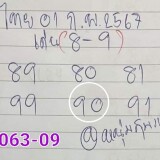 ไทย 01 ก.พ. 2567
เด่น (8-9)
89 80 81
99 90 91
063-09